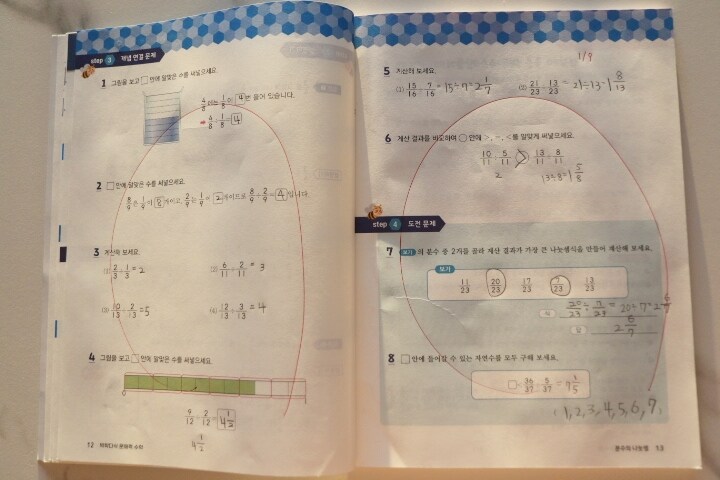 step 3 개념 연결 문제
1 그림을 보고 □ 안에 알맞은 수를 써넣으세요.
4/8 에는 1/8 이 4번 들어 있습니다.
4/8 ÷ 1/8 = 4
2 □ 안에 알맞은 수를 써넣으세요.
8/9은 1/9이 8개이고, 2/9는 1/9이 2개이므로 8/9 ÷ 2/9 = 4입니다.
3 계산해 보세요.
(1) 2/3 ÷ 1/3 = 2
(2) 6/11 ÷ 2/11 = 3
(3) 10/13 ÷ 2/13 = 5
(4) 12/13 ÷ 3/13 = 4
4 그림을 보고 □ 안에 알맞은 수를 써넣으세요.
0 1
9/12 ÷ 2/12 = 4 1/2
4 1/2
12
1/9
5 계산해 보세요.
(1) 15/16 ÷ 7/16 = 15÷7=2 1/7
(2) 21/23 ÷ 13/23 = 21÷13=1 8/13
6 계산 결과를 비교하여 ○ 안에 >, =, <를 알맞게 써넣으세요.
10/11 ÷ 5/11 > 13/11 ÷ 8/11
2 13÷8=1 5/8
step 4 도전 문제
7 보기 의 분수 중 2개를 골라 계산 결과가 가장 큰 나눗셈식을 만들어 계산해 보세요.
보기
11/23 20/23 17/23 7/23 13/23
식 20/23 ÷ 7/23 = 20÷7=2 6/7
답 2 6/7
8 □ 안에 들어갈 수 있는 자연수를 모두 구해 보세요.
□< 36/37 ÷ 5/37 = 7 1/5
(1, 2, 3, 4, 5, 6, 7)
분수의 나눗셈 13